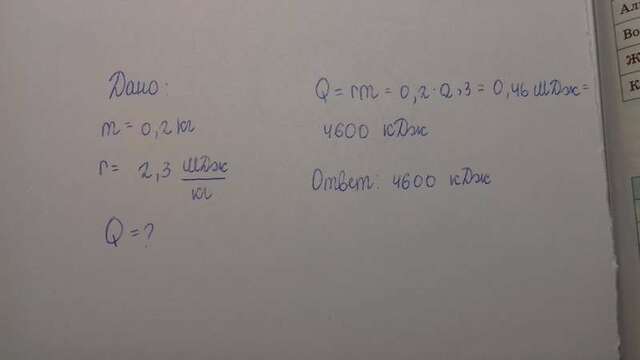 Дано:
m = 0,2 кг
r = 2,3 МДж
кг
Q = ?
Q = rm = 0,2 · 2,3 = 0,46 МДж =
4600 кДж
Ответ: 4600 кДж
Ал
Во
Ж
К